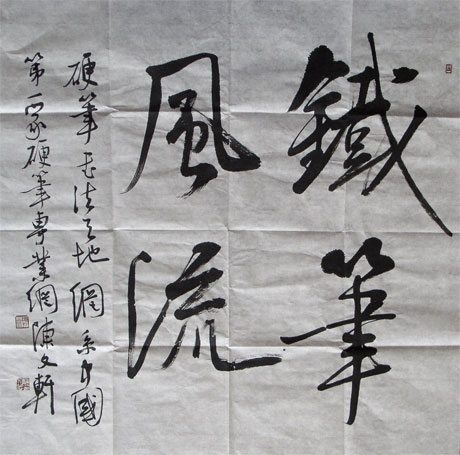 鐵筆
風流
硬筆书法天地網系中國
第一家硬筆專業網陳文軒